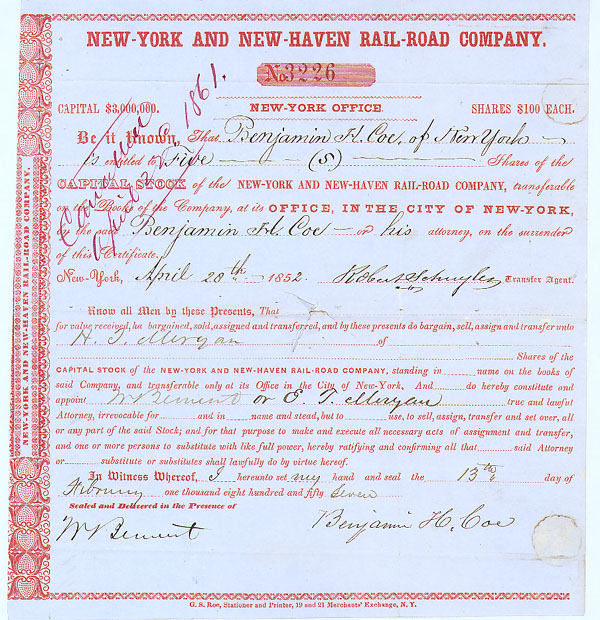 NEW-YORK AND NEW-HAVEN RAIL-ROAD COMPANY.
No 3226
CAPITAL $3,000,000. NEW-YORK OFFICE. SHARES $100 EACH.
Be it Known, That Benjamin H. Coe, of New York
is entitled to Five (5) Shares of the
CAPITAL STOCK of the NEW-YORK AND NEW-HAVEN RAIL-ROAD COMPANY, transferable
on the Books of the Company, at its OFFICE, IN THE CITY OF NEW-YORK,
by the said Benjamin H. Coe or his attorney, on the surrender
of this Certificate.
New-York, April 20th 1852. Robert Schuyler Transfer Agent.
April 1861.
Know all Men by these Presents, That
for value received, ha bargained, sold, assigned and transferred, and by these presents do bargain, sell, assign and transfer unto
of
Shares of the
CAPITAL STOCK OF THE NEW-YORK AND NEW-HAVEN RAIL-ROAD COMPANY, standing in name on the books of
said Company, and transferable only at its Office in the City of New-York. And do hereby constitute and
appoint W Bement or true and lawful
Attorney, irrevocable for and in name and stead, but to use, to sell, assign, transfer and set over, all
or any part of the said Stock; and for that purpose to make and execute all necessary acts of assignment and transfer,
and one or more persons to substitute with like full power, hereby ratifying and confirming all that said Attorney
or substitute or substitutes shall lawfully do by virtue hereof.
In Witness Whereof, I hereunto set my hand and seal the 13th day of
February one thousand eight hundred and fifty Seven
Sealed and Delivered in the Presence of
W Bement Benjamin H. Coe
G. S. Roe, Stationer and Printer, 19 and 21 Merchants' Exchange, N. Y.
NEW-YORK AND NEW-HAVEN RAIL-ROAD COMPANY.